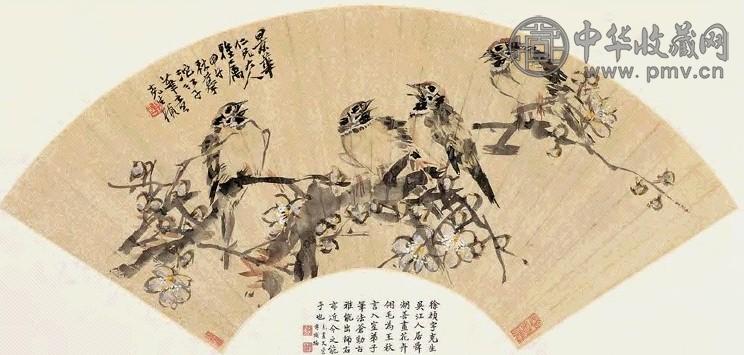 中华收藏网
www.pmv.cn
景華
仁兄大人
雅屬
甲午
秋暮
徐楨字克生
吳江人居舜
湖善畫花卉
翎毛為王秋
言入室弟子
筆法蒼勁古
雅能出師右
亦近今之能
手也